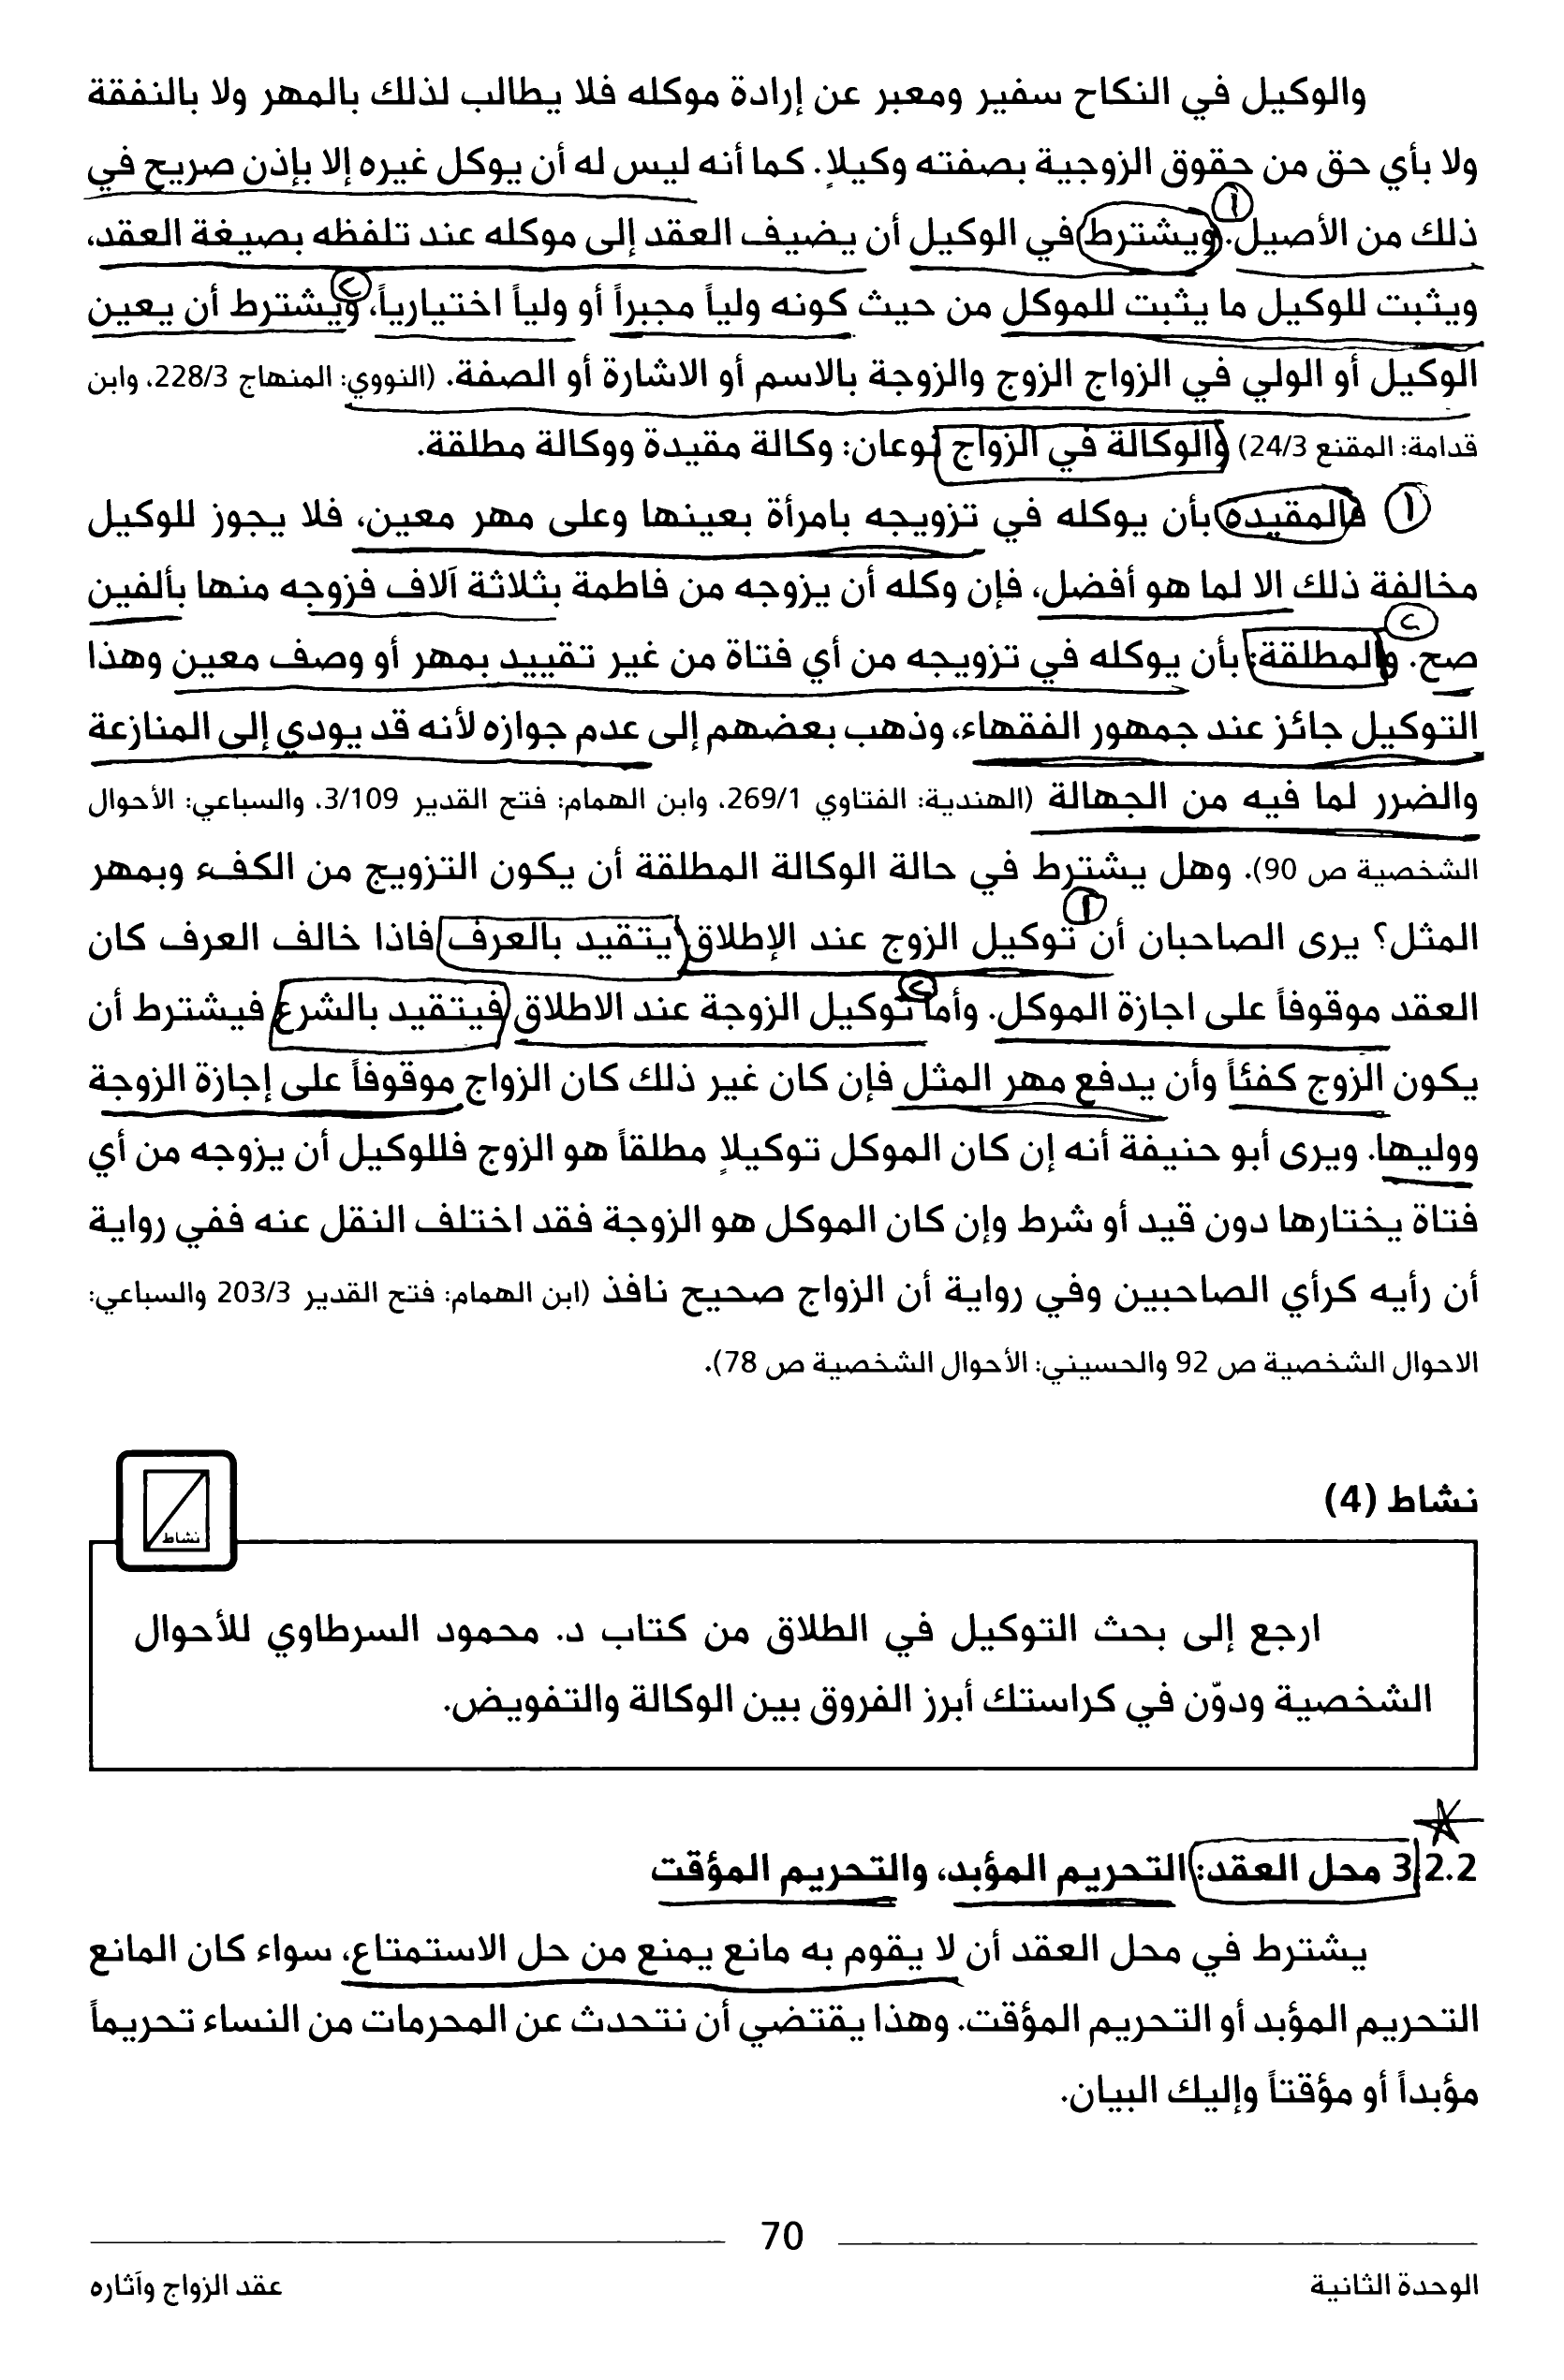 والوكيل في النكاح سفير ومعبر عن إرادة موكله فلا يطالب لذلك بالمهر ولا بالنفقة
ولا بأي حق من حقوق الزوجية بصفته وكيلاٍ. كما أنه ليس له أن يوكل غيره إلا بإذن صريح في
ذلك من الأصيل. ويشترط في الوكيل أن يضيف العقد إلى موكله عند تلفظه بصيغة العقد،
ويثبت للوكيل ما يثبت للموكل من حيث كونه ولياً مجبراً أو ولياً اختيارياً، ويشترط أن يعين
الوكيل أو الولي في الزواج الزوج والزوجة بالاسم أو الاشارة أو الصفة. (النووي: المنهاج 228/3، وابن
قدامة: المقنع 24/3) والوكالة في الزواج نوعان: وكالة مقيدة ووكالة مطلقة.
① فالمقيده بأن يوكله في تزويجه بامرأة بعينها وعلى مهر معين، فلا يجوز للوكيل
مخالفة ذلك الا لما هو أفضل، فإن وكله أن يزوجه من فاطمة بثلاثة آلاف فزوجه منها بألفين
صح. والمطلقة: بأن يوكله في تزويجه من أي فتاة من غير تقييد بمهر أو وصف معين وهذا
التوكيل جائز عند جمهور الفقهاء، وذهب بعضهم إلى عدم جوازه لأنه قد يودي إلى المنازعة
والضرر لما فيه من الجهالة (الهندية: الفتاوي 269/1، وابن الهمام: فتح القدير 3/109، والسباعي: الأحوال
الشخصية ص 90). وهل يشترط في حالة الوكالة المطلقة أن يكون التزويج من الكفء وبمهر
المثل؟ يرى الصاحبان أن توكيل الزوج عند الإطلاق يتقيد بالعرف فاذا خالف العرف كان
العقد موقوفاً على اجازة الموكل. وأما توكيل الزوجة عند الاطلاق فيتقيد بالشرع فيشترط أن
يكون الزوج كفئاً وأن يدفع مهر المثل فإن كان غير ذلك كان الزواج موقوفاً على إجازة الزوجة
ووليها. ويرى أبو حنيفة أنه إن كان الموكل توكيلاٍ مطلقاً هو الزوج فللوكيل أن يزوجه من أي
فتاة يختارها دون قيد أو شرط وإن كان الموكل هو الزوجة فقد اختلف النقل عنه ففي رواية
أن رأيه كرأي الصاحبين وفي رواية أن الزواج صحيح نافذ (ابن الهمام: فتح القدير 203/3 والسباعي:
الاحوال الشخصية ص 92 والحسيني: الأحوال الشخصية ص 78).
نشاط (4)
نشاط
ارجع إلى بحث التوكيل في الطلاق من كتاب د. محمود السرطاوي للأحوال
الشخصية ودوّن في كراستك أبرز الفروق بين الوكالة والتفويض.
3.2.2 محل العقد: التحريم المؤبد، والتحريم المؤقت
يشترط في محل العقد أن لا يقوم به مانع يمنع من حل الاستمتاع، سواء كان المانع
التحريم المؤبد أو التحريم المؤقت. وهذا يقتضي أن نتحدث عن المحرمات من النساء تحريماً
مؤبداً أو مؤقتاً وإليك البيان.
70
الوحدة الثانية
عقد الزواج وآثاره